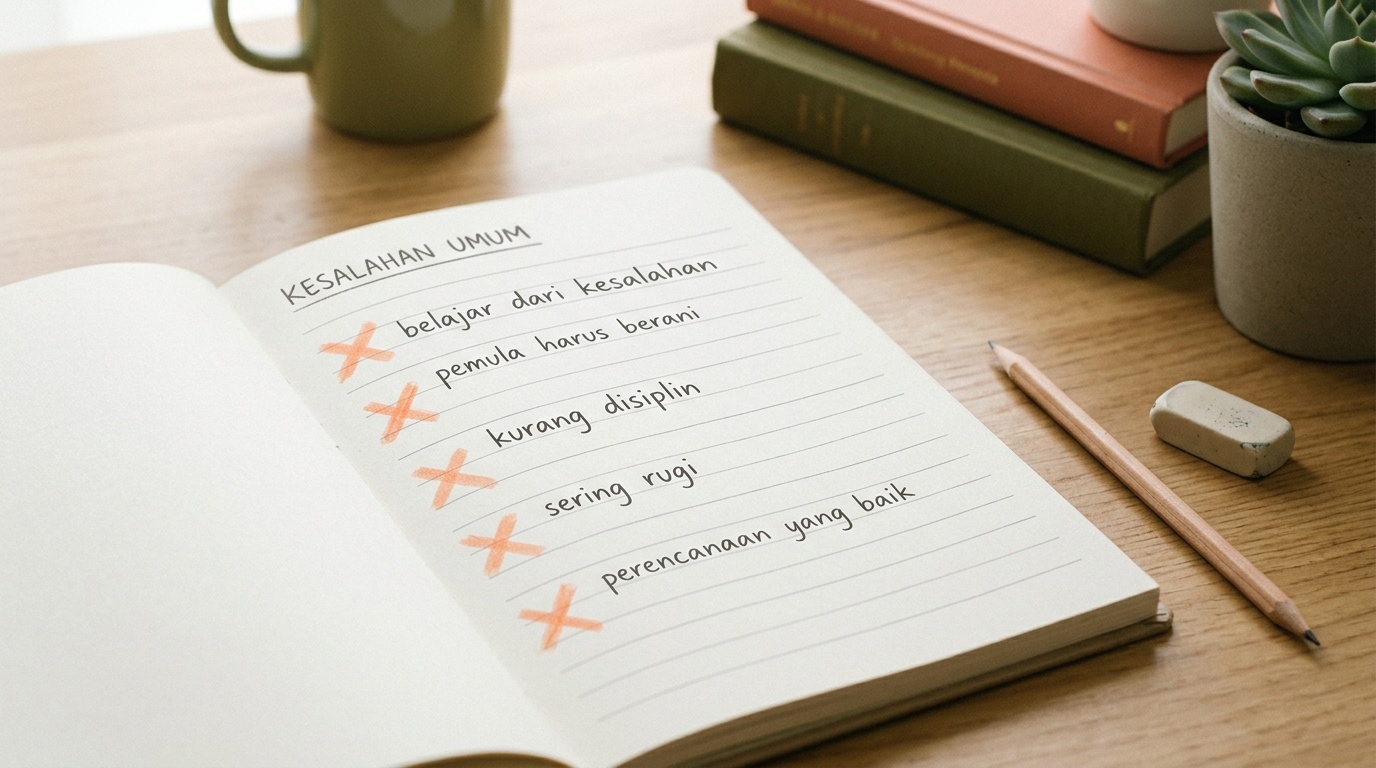 KESALAHAN UMUM
belajar dari kesalahan
pemula harus berani
kurang disiplin
sering rugi
perencanaan yang baik